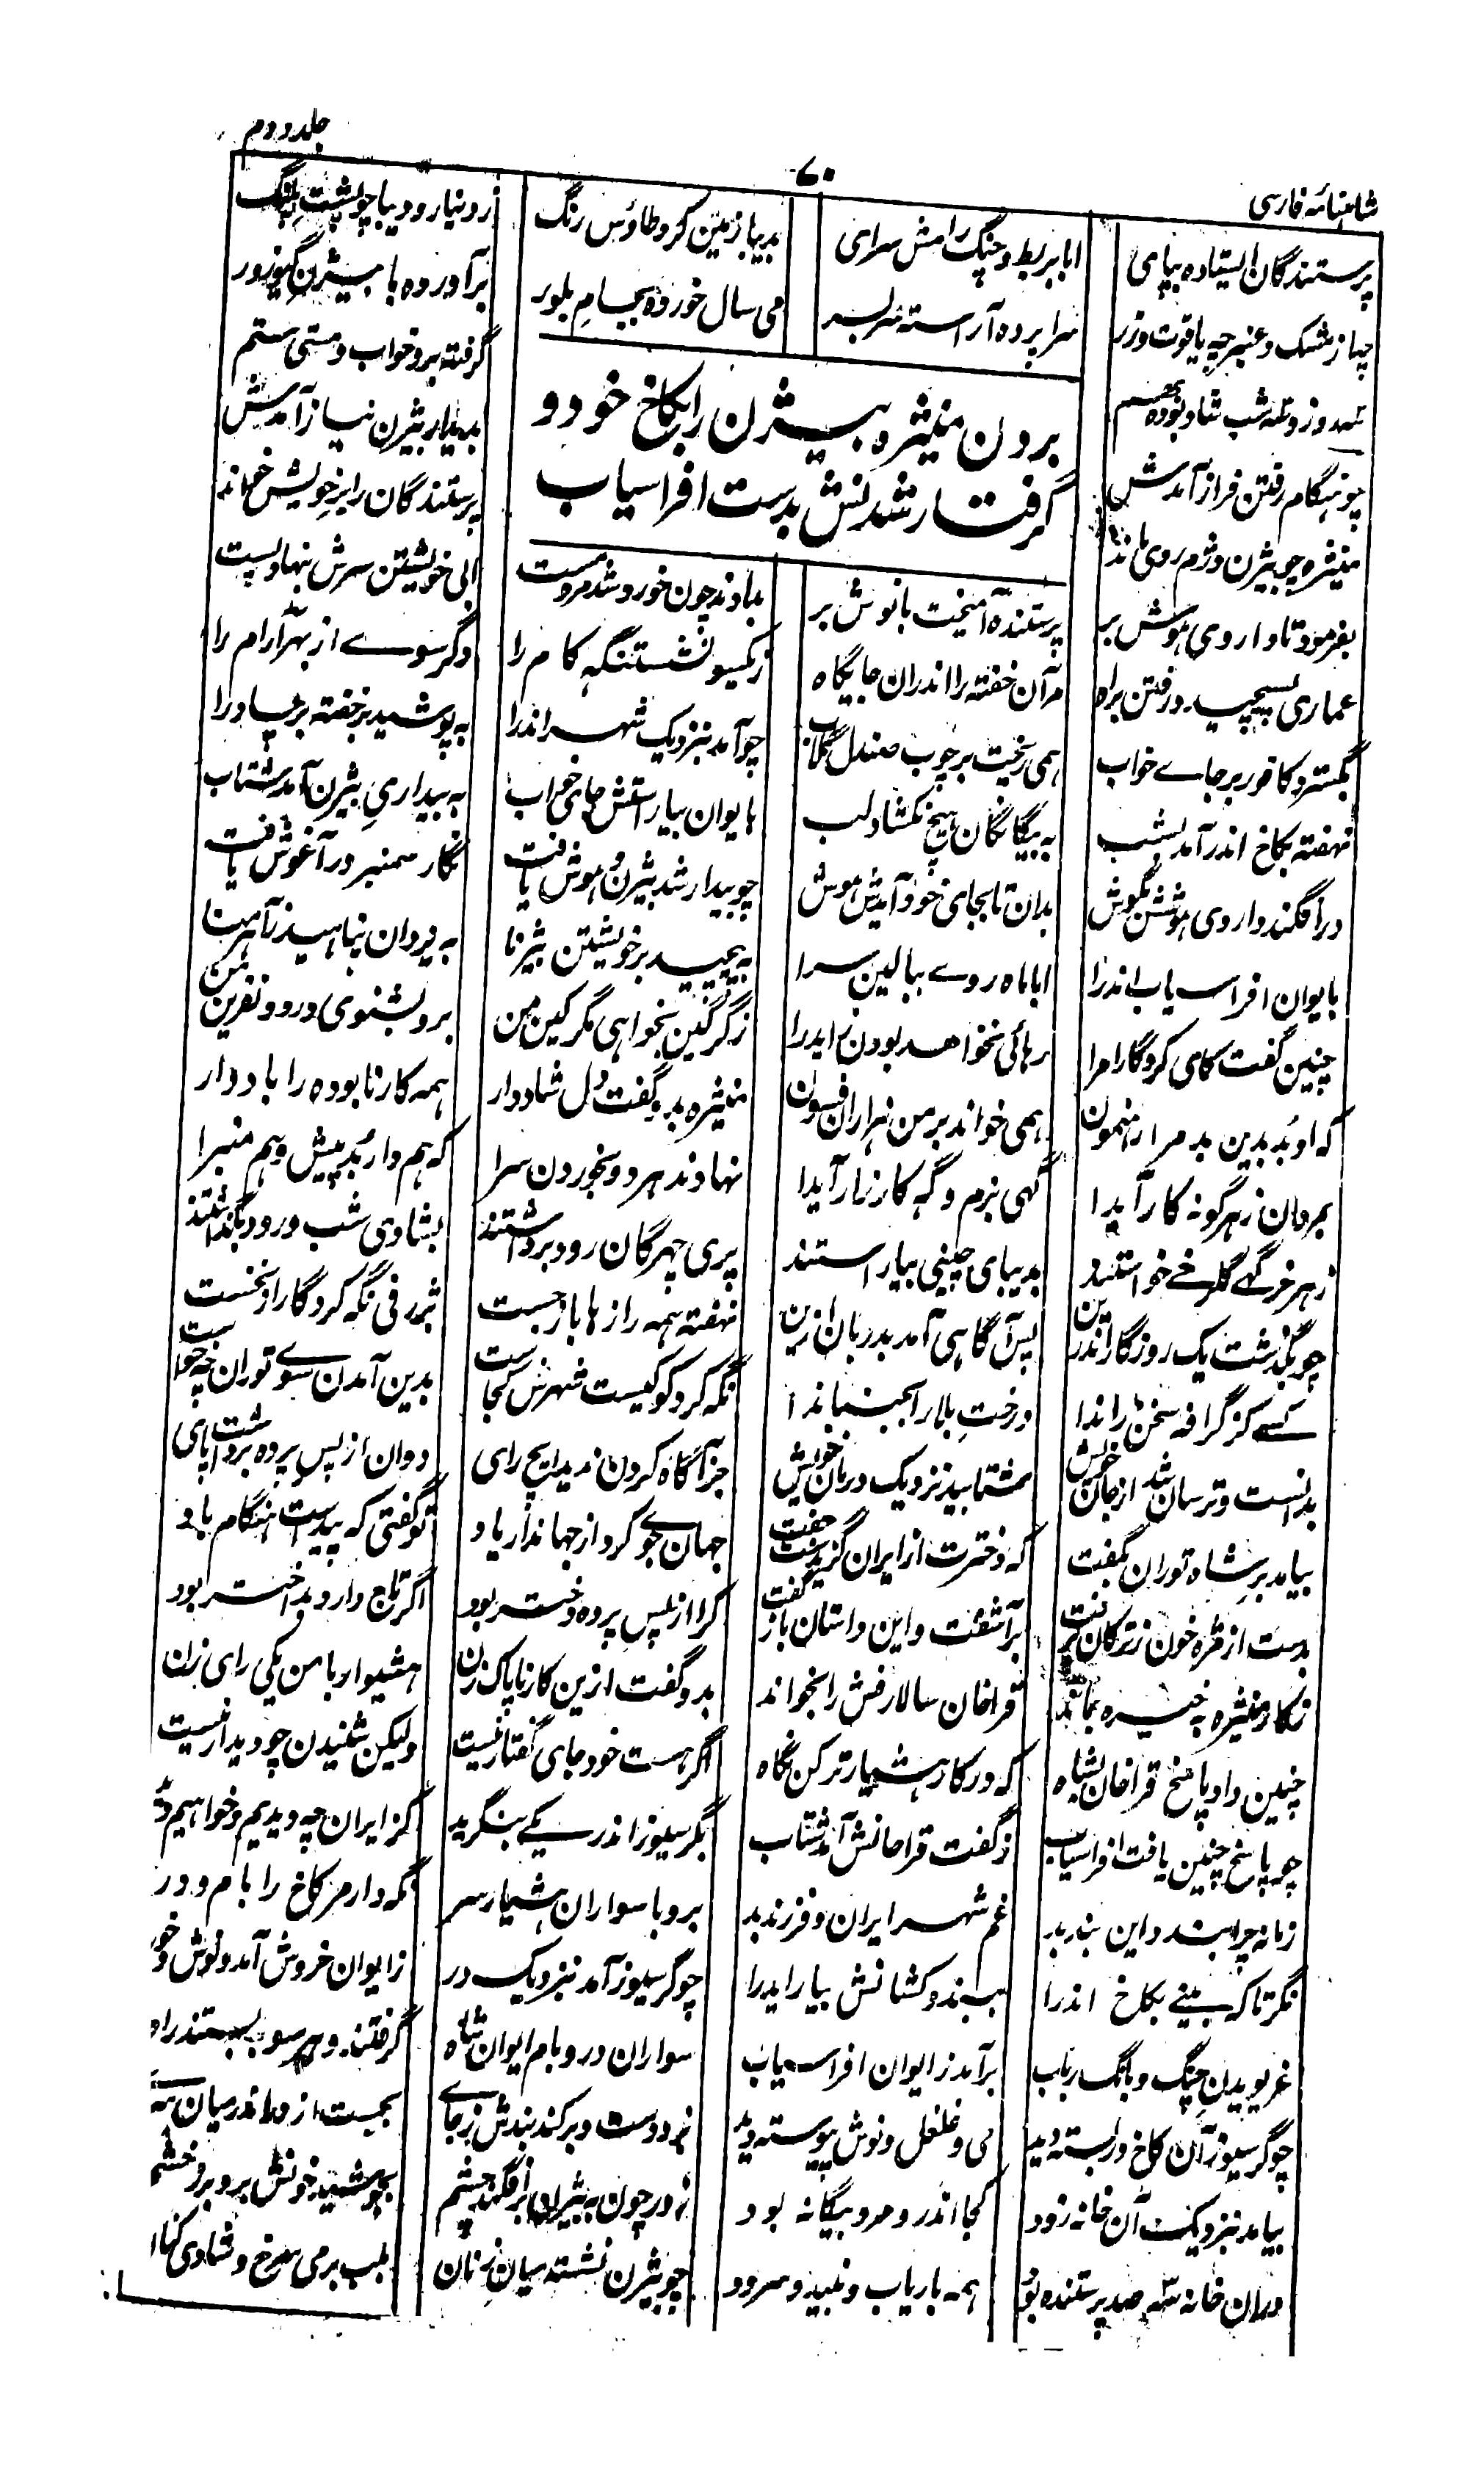 شاهنامه فارسی
۶۰
جلد دوم
پرستندگان ایستاده بپای
ابا بربط و چنگ رامش سرای
بدیبا زمین کرد طاؤس رنگ
ز دینار و دیبا چو پشت پلنگ
چه از مشک و عنبر چه یاقوت و زر
سراپرده آراسته سربسر
می سال خورده بجام بلور
برآورده با بیژن گیو زور
سه روز و سه شب شاد بوده بهم
گرفته برو خواب و مستی ستم
چو هنگام رفتن فراز آمدش
بدیدار بیژن نیاز آمدش
منیژه چو بیژن دژم روی ماند
پرستندگان را بر خویش خواند
بردن منیژه بیژن را بکاخ خود و
گرفتار شدنش بدست افراسیاب
بفرمود تا داروی هوش بر
پرستنده آمیخت با نوش بر
بدادند چون خورد شد مرد مست
ابی خویشتن سرش بنهاد پست
عماری بسیچید و رفتن براه
مر آن خفته را اندران جایگاه
ز یکسو نشستنگه کام را
دگر سوے از بهر آرام را
بگسترد کافور بر جاے خواب
همی ریخت بر چوب صندل گلاب
چو آمد بنزدیک شهر اندرا
بپوشید بر خفته بر چادرا
نهفته بکاخ اندر آمد بشب
به بیگانگان هیچ نکشاد لب
بایوان بیاراستش جای خواب
به بیداری بیژن آمد شتاب
درافگند داروی هوشش بگوش
بدان تا بجای خود آیدش هوش
چو بیدار شد بیژن و هوش یافت
نگار سمنبر در آغوش یافت
بایوان افراسیاب اندرا
ابا ماه روے ببالین سرا
به پیچید بر خویشتن بیژنا
به یزدان پناهید ز آهرمنا
چنین گفت کای کردگار مرا
رهائی نخواهد بودن ز ایدرا
ز گرگین بخواهی مگر کین من
برو بشنوی درد و نفرین من
که او بُد بدین بد مرا رهنمون
همی خواند بر من هزاران فسون
منیژه بدو گفت دل شاد دار
همه کار نابوده را باد دار
بمردان ز هر گونه کار آیدا
گهی بزم و گه کارزار آیدا
نهادند هر دو بخوردن سرا
که هم دار بُد پیش و هم منبرا
ز هر خرگهے گلرخے خواستند
بدیبای چینی بیاراستند
پری چهرگان رود برداشتند
بشادی شب و روز بگذاشتند
چو بگذشت یک روزگار اندرین
پس آگاهی آمد بدربان ازین
نهفته همه رازها باز جست
بژرفی نگه کرد کار از نخست
کسے کز گزافه سخن راندا
درخت بلا را بجنباندا
نگه کرد کو کیست شهرش کجاست
بدین آمدن سوے توران چه خواست
بدانست و ترسان شد از جان خویش
شتابید نزدیک درمان خویش
جز آگاه کردن ندید ایچ رای
دوان از پس پرده برداشت پای
بیامد بر شاه توران بگفت
که دخترت از ایران گزیدست جفت
جهان جوے کرد از جهاندار یاد
تو گفتی که بیدست هنگام باد
بدست از مژه خون
برآشفت و این داستان باز گفت
کرا از پس پرده دختر بود
اگر تاج دارد بد اختر بود
ز کار منیژه به خیره بماند
قراخان سالارفش را بخواند
بدو گفت ازین کار ناپاک زن
هشیوار با من یکی رای زن
چنین داد پاسخ قراخان بشاه
که در کار هشیارتر کن نگاه
اگر هست خود جای گفتار نیست
ولیکن شنیدن چو دیدار نیست
چو پاسخ چنین یافت افراسیاب
ز گفت قراخانش آمد شتاب
بگرسیوز اندر یکے بنگرید
کز ایران چه دیدیم و خواهیم دید
زمانه چرا بندد این بند بد
غم شهر ایران و فرزند بد
برو با سواران هشیار سر
نگه دار مر کاخ را بام و در
نگر تا که بینے بکاخ اندرا
ببند و کشانش بیار ایدرا
چو گرسیوز آمد بنزدیک در
ز ایوان خروش آمد و نوش و خور
غریویدن چنگ و بانگ رباب
برآمد ز ایوان افراسیاب
سواران در و بام ایوان شاه
گرفتند و هر سو ببستند راه
چو گرسیوز آن کاخ در بسته دید
می و غلغل و نوش پیوسته دید
بزد دست و برکند بندش ز جاے
بجست از در اندر میان
بیامد بنزدیک آن خانه زود
کجا اندرو مرد بیگانه بود
ز در چون به بیژن برافگند چشم
بجوشید خونش برو بر ز خشم
دران خانه سه صد پرستنده بود
همه با رباب و نبید و سرود
چو بیژن نشسته میان زنان
بلب بر می سرخ و شادی کنا